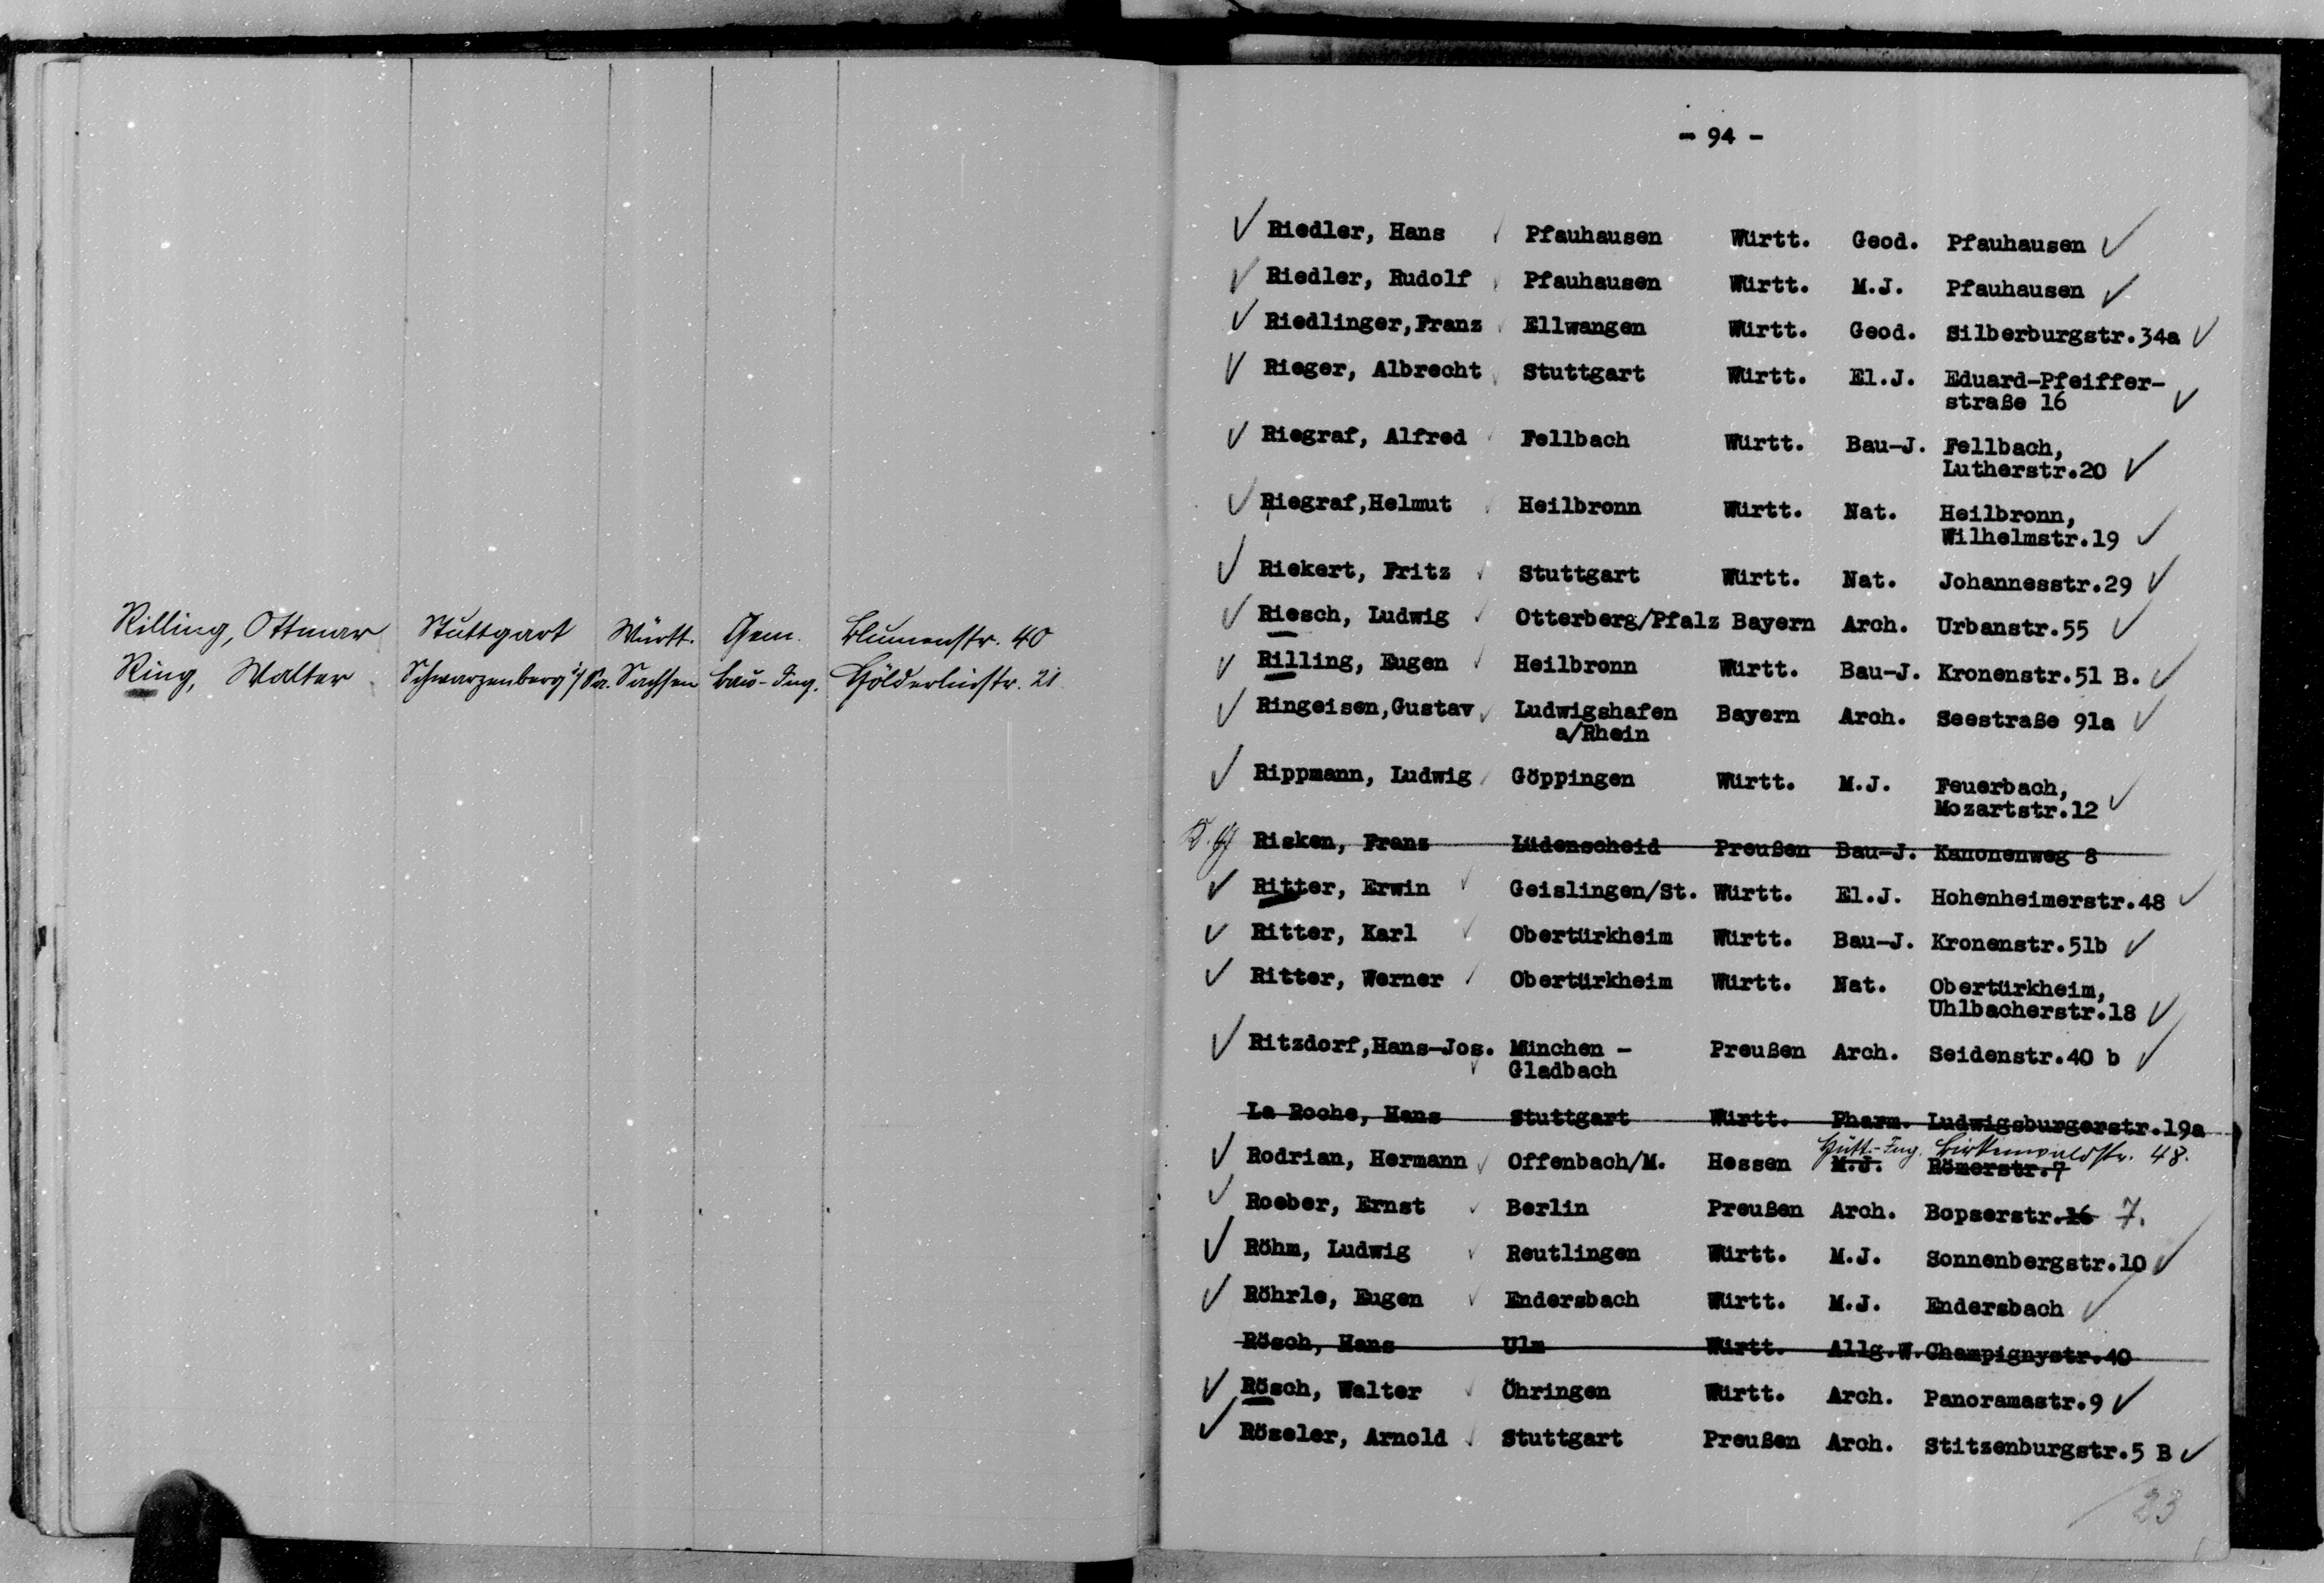 Rilling, Ottmar Stuttgart Württ. Chem. Blumenstr. 40
Ring, Walter Schwarzenberg i/Sa. Sachsen Bau-Ing. Hölderlinstr. 21
- 94 -
Riedler, Hans Pfauhausen Württ. Geod. Pfauhausen
Riedler, Rudolf Pfauhausen Württ. M.J. Pfauhausen
Riedlinger,Franz Ellwangen Württ. Geod. Silberburgstr.34a
Rieger, Albrecht Stuttgart Württ. El.J. Eduard-Pfeiffer-
straße 16
Riegraf, Alfred Fellbach Württ. Bau-J. Fellbach,
Lutherstr.20
Riegraf,Helmut Heilbronn Württ. Nat. Heilbronn,
Wilhelmstr.19
Riekert, Fritz Stuttgart Württ. Nat. Johannesstr.29
Riesch, Ludwig Otterberg/Pfalz Bayern Arch. Urbanstr.55
Rilling, Eugen Heilbronn Württ. Bau-J. Kronenstr.51 B.
Ringeisen,Gustav Ludwigshafen Bayern Arch. Seestraße 91a
a/Rhein
Rippmann, Ludwig Göppingen Württ. M.J. Feuerbach,
Mozartstr.12
Risken, Franz Lüdenscheid Preußen Bau-J. Kanonenweg 8
Ritter, Erwin Geislingen/St. Württ. El.J. Hohenheimerstr.48
Ritter, Karl Obertürkheim Württ. Bau-J. Kronenstr.51b
Ritter, Werner Obertürkheim Württ. Nat. Obertürkheim,
Uhlbacherstr.18
Ritzdorf,Hans-Jos. München - Preußen Arch. Seidenstr.40 b
Gladbach
La Roche, Hans Stuttgart Württ. Pharm. Ludwigsburgerstr.19a
Hütt.-Ing. Birkenwaldstr. 48.
Rodrian, Hermann Offenbach/M. Hessen M.J. Römerstr.7
Roeber, Ernst Berlin Preußen Arch. Bopserstr.16 7.
Röhm, Ludwig Reutlingen Württ. M.J. Sonnenbergstr.10
Röhrle, Eugen Endersbach Württ. M.J. Endersbach
Rösch, Hans Ulm Württ. Allg.W. Champignystr.40
Rösch, Walter Öhringen Württ. Arch. Panoramastr.9
Röseler, Arnold Stuttgart Preußen Arch. Stitzenburgstr.5 B
23